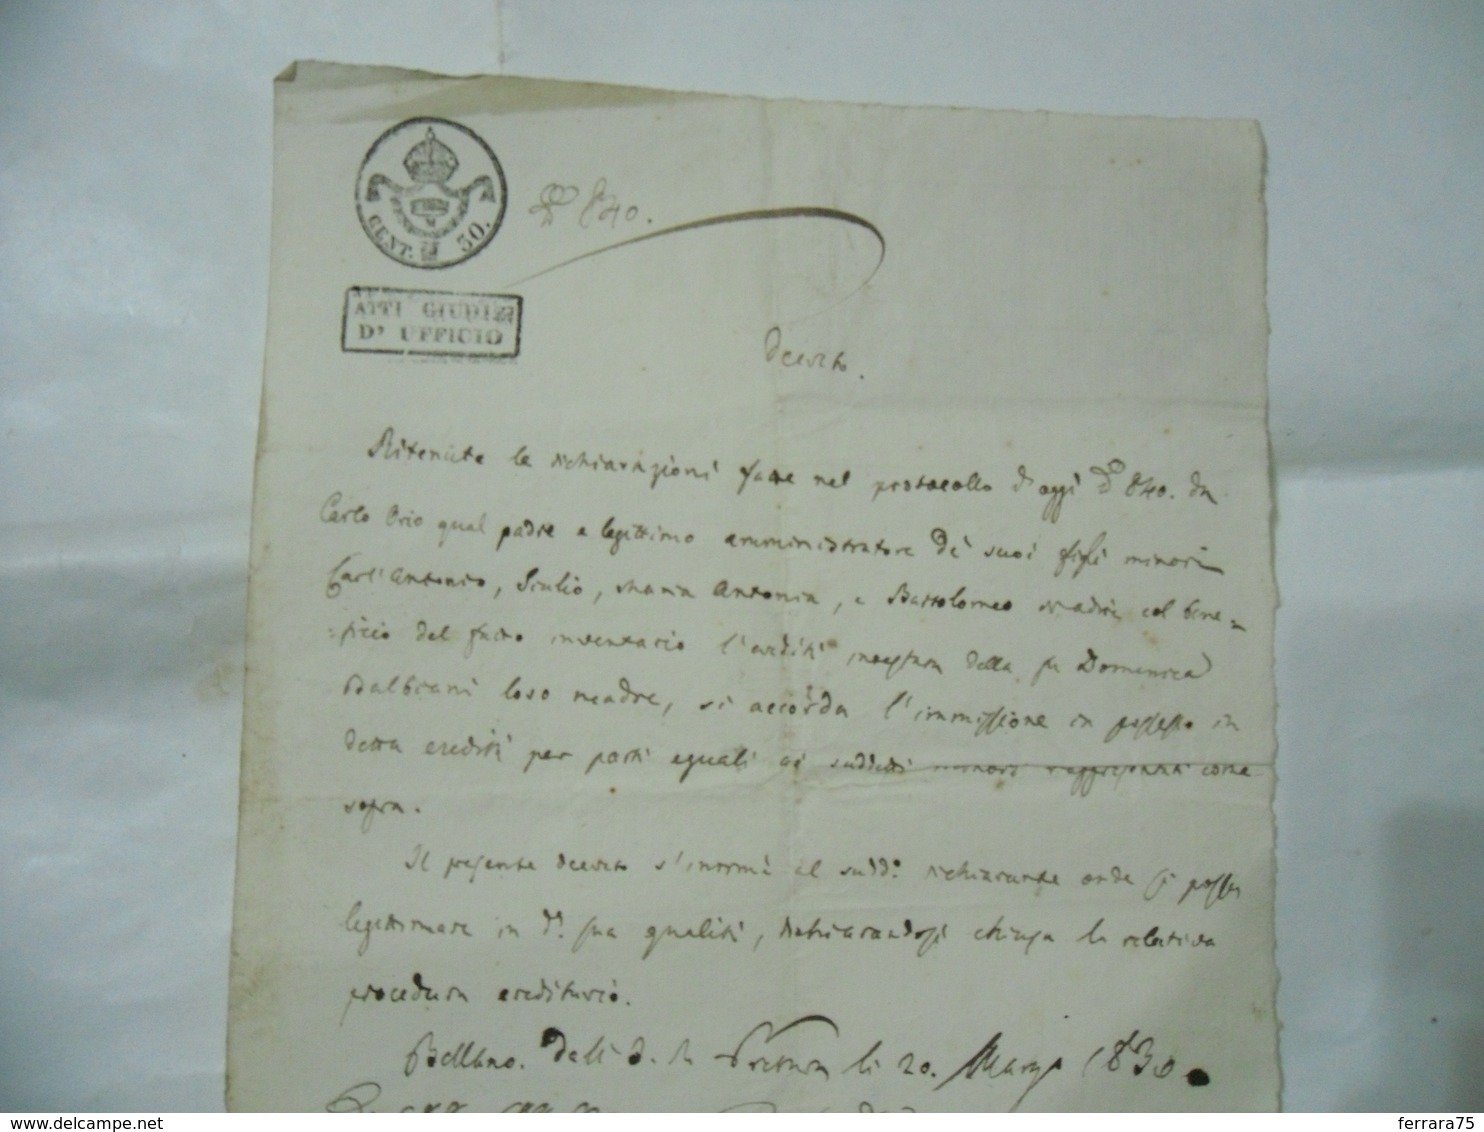 CENT. 50.
N.º 840.
ATTI GIUDIZI
D' UFFICIO
Decreto.
Ritenute le dichiarazioni fatte nel protocollo d'oggi N.º 840. da
Carlo Orio qual padre e legittimo amministratore de' suoi figli minori
Carl'Antonio, Giulio, Maria Antonia, e Bartolomeo adire col bene=
=ficio del fatto inventario l'eredità intestata della fu Domenica
Balbiani loro madre, si accorda l'immissione in possesso in
detta eredità per parti eguali ai suddetti minori rappresentati come
sopra.
Il presente decreto s'intimi al sudd.º dichiarante onde si possa
legittimare in d.ª sua qualità, dichiarandosi chiusa la relativa
procedura ereditaria.
Bellano. Dall'I. R. Pretura li 20. Marzo 1830.
ferrara75